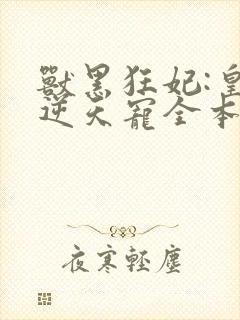 獸黑狂妃:皇
逆天寵全本
夜寒輕塵